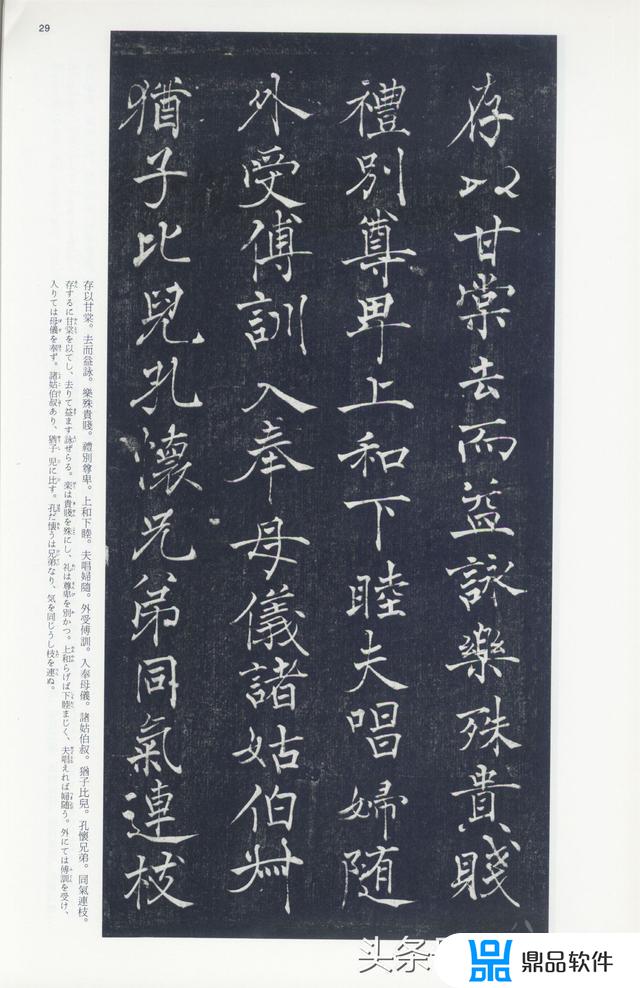 29
存以甘棠去而益詠樂殊貴賤
禮別尊卑上和下睦夫唱婦随
外受傅訓入奉母儀諸姑伯叔
猶子比兒孔懷兄弟同氣連枝
存以甘棠。去而益詠。樂殊貴賤。禮別尊卑。上和下睦。夫唱婦隨。外受傅訓。入奉母儀。諸姑伯叔。猶子比兒。孔懷兄弟。同氣連枝。
存するに甘棠を以てし、去りて益ます詠ぜらる。楽は貴賤を殊にし、礼は尊卑を別かつ。上和らげば下睦まじく、夫唱えれば婦随う。外にては傅訓を受け、
入りては母儀を奉ず。諸姑伯叔あり、猶子 児に比す。孔だ懐うは兄弟なり、気を同じうし枝を連ぬ。
头条
鼎品软件